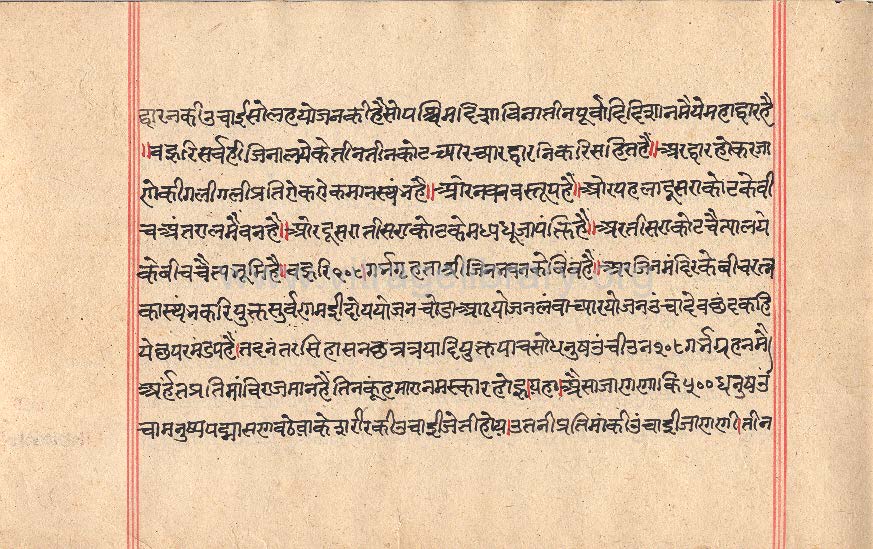 द्वारनकी उचाई सोलह योजनकी है सो पश्चिम दिशा विना तीन पूर्वादि दिशानमै ये महाद्वार है
॥ बहुरि सर्व ही जिनालयेके तीन तीन कोट च्यार च्यार द्वारनि करि सहित है ॥ अर द्वार होकर जा
णेकी गली गली प्रति एक एक मानस्थंभ है ॥ ओर नव नव स्तूप है ॥ ओर पहला दूसरा कोटके वी
च अंतरालमै वन है ॥ ओर दूसरा तीसरा कोटके मध्य धूजा पंक्ति है ॥ अर तीसरा कोट चैत्यालये
के बीच चैत्य भूमि है बहुरि १०८ गर्भ ग्रह ता
अर जिनमंदिरके बीच रत्न
का स्थंभ करि युक्त सुर्वणमई दोय योजन चोडा आठ योजन लंवा च्यार योजन उंचा देवछंद कहि
ये छपर मंडप है । तदनंतर सिंहासन छत्र त्रयादि युक्त पाचसो धनुष उंची उन १०८ गर्भ ग्रहनमै
अर्हत प्रतिमां विराजमान है तिनकूं हमारा नमस्कार होहु अैसा जाणणा कि ५०० धनुष उं
चा मनुष्य पद्मासण वेठेवाके शरीरकी उचाई जेती होय । उतनी प्रतिमांकी उंचाई जाणणी । तीन
www.vitragelibrary.org